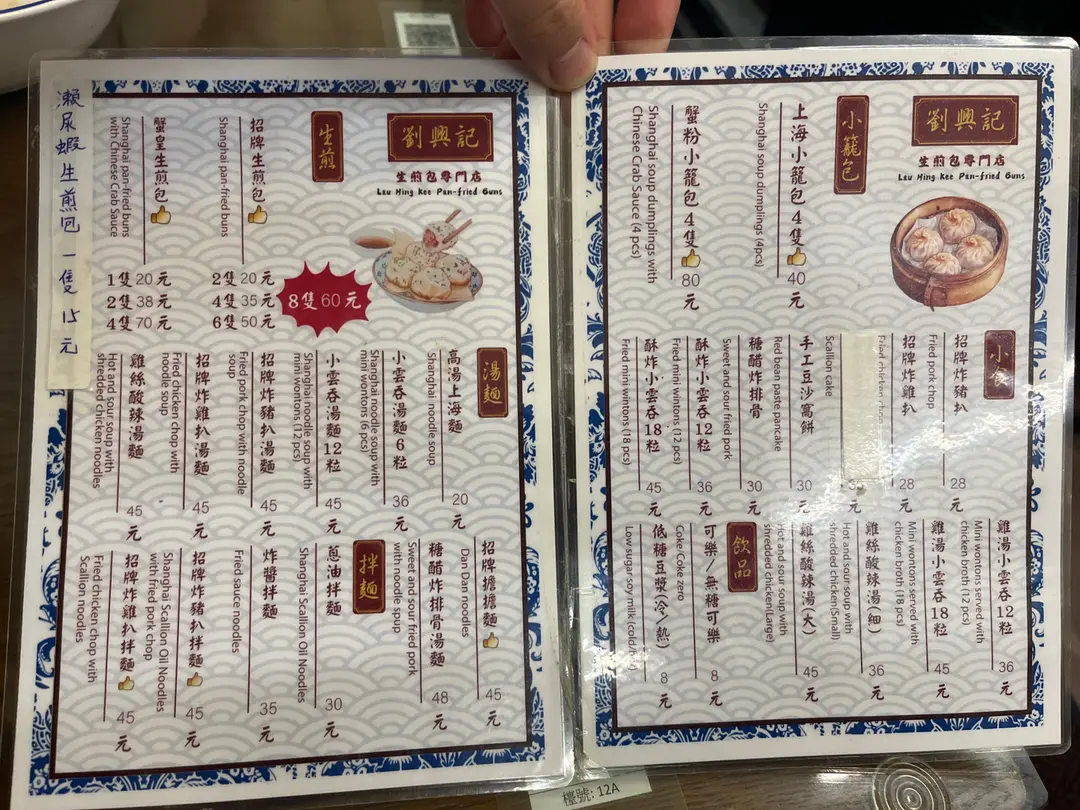 瀨尿蝦生煎包 一隻 15元
劉興記
生煎包專門店
Lau Hing Kee Pan-fried Buns
生煎
招牌生煎包
Shanghai pan-fried buns
2隻 20 元
4隻 35 元
6隻 50 元
8隻 60 元
蟹皇生煎包
Shanghai pan-fried buns
with Chinese Crab Sauce
1隻 20 元
2隻 38 元
4隻 70 元
湯麵
高湯上海麵
Shanghai noodle soup
20 元
小雲吞湯麵 6 粒
Shanghai noodle soup with
mini wontons (6 pcs)
36 元
小雲吞湯麵 12 粒
Shanghai noodle soup with
mini wontons (12 pcs)
45 元
招牌炸豬扒湯麵
Fried pork chop with noodle
soup
45 元
招牌炸雞扒湯麵
Fried chicken chop with
noodle soup
45 元
雞絲酸辣湯麵
Hot and sour soup with
shredded chicken noodles
45 元
招牌擔擔麵
Dan Dan noodles
45 元
糖醋炸排骨湯麵
Sweet and sour fried pork
with noodle spup
48 元
拌麵
蔥油拌麵
Shanghai Scallion Oil Noodles
30 元
炸醬拌麵
Fried sauce noodles
35 元
招牌炸豬扒拌麵
Shanghai Scallion Oil Noodles
with fried pork chop
45 元
招牌炸雞扒拌麵
Fried chicken chop with
Scallion noodles
45 元
劉興記
生煎包專門店
Lau Hing Kee Pan-fried Buns
小籠包
上海小籠包 4 隻
Shanghai soup dumplings (4pcs)
40 元
蟹粉小籠包 4 隻
Shanghai soup dumplings with
Chinese Crab Sauce (4 pcs)
80 元
小食
招牌炸豬扒
Fried pork chop
28 元
招牌炸雞扒
Fried chicken chop
28 元
Scallion cake
元
手工豆沙窩餅
Red bean paste pancake
30 元
糖醋炸排骨
Sweet and sour fried pork
30 元
酥炸小雲吞 12 粒
Fried mini wintons (12 pcs)
36 元
酥炸小雲吞 18 粒
Fried mini wintons (18 pcs)
45 元
雞湯小雲吞 12 粒
Mini wontons served with
chicken broth (12 pcs)
36 元
雞湯小雲吞 18 粒
Mini wontons served with
chicken broth (18 pcs)
45 元
雞絲酸辣湯(細)
Hot and sour soup with
shredded chicken(Small)
36 元
雞絲酸辣湯(大)
Hot and sour soup with
shredded chicken(Large)
45 元
飲品
可樂／無糖可樂
Coke/Coke zero
8 元
低糖豆漿(冷／熱)
Low sugar soy milk (cold/hot)
8 元
檯號: 12A